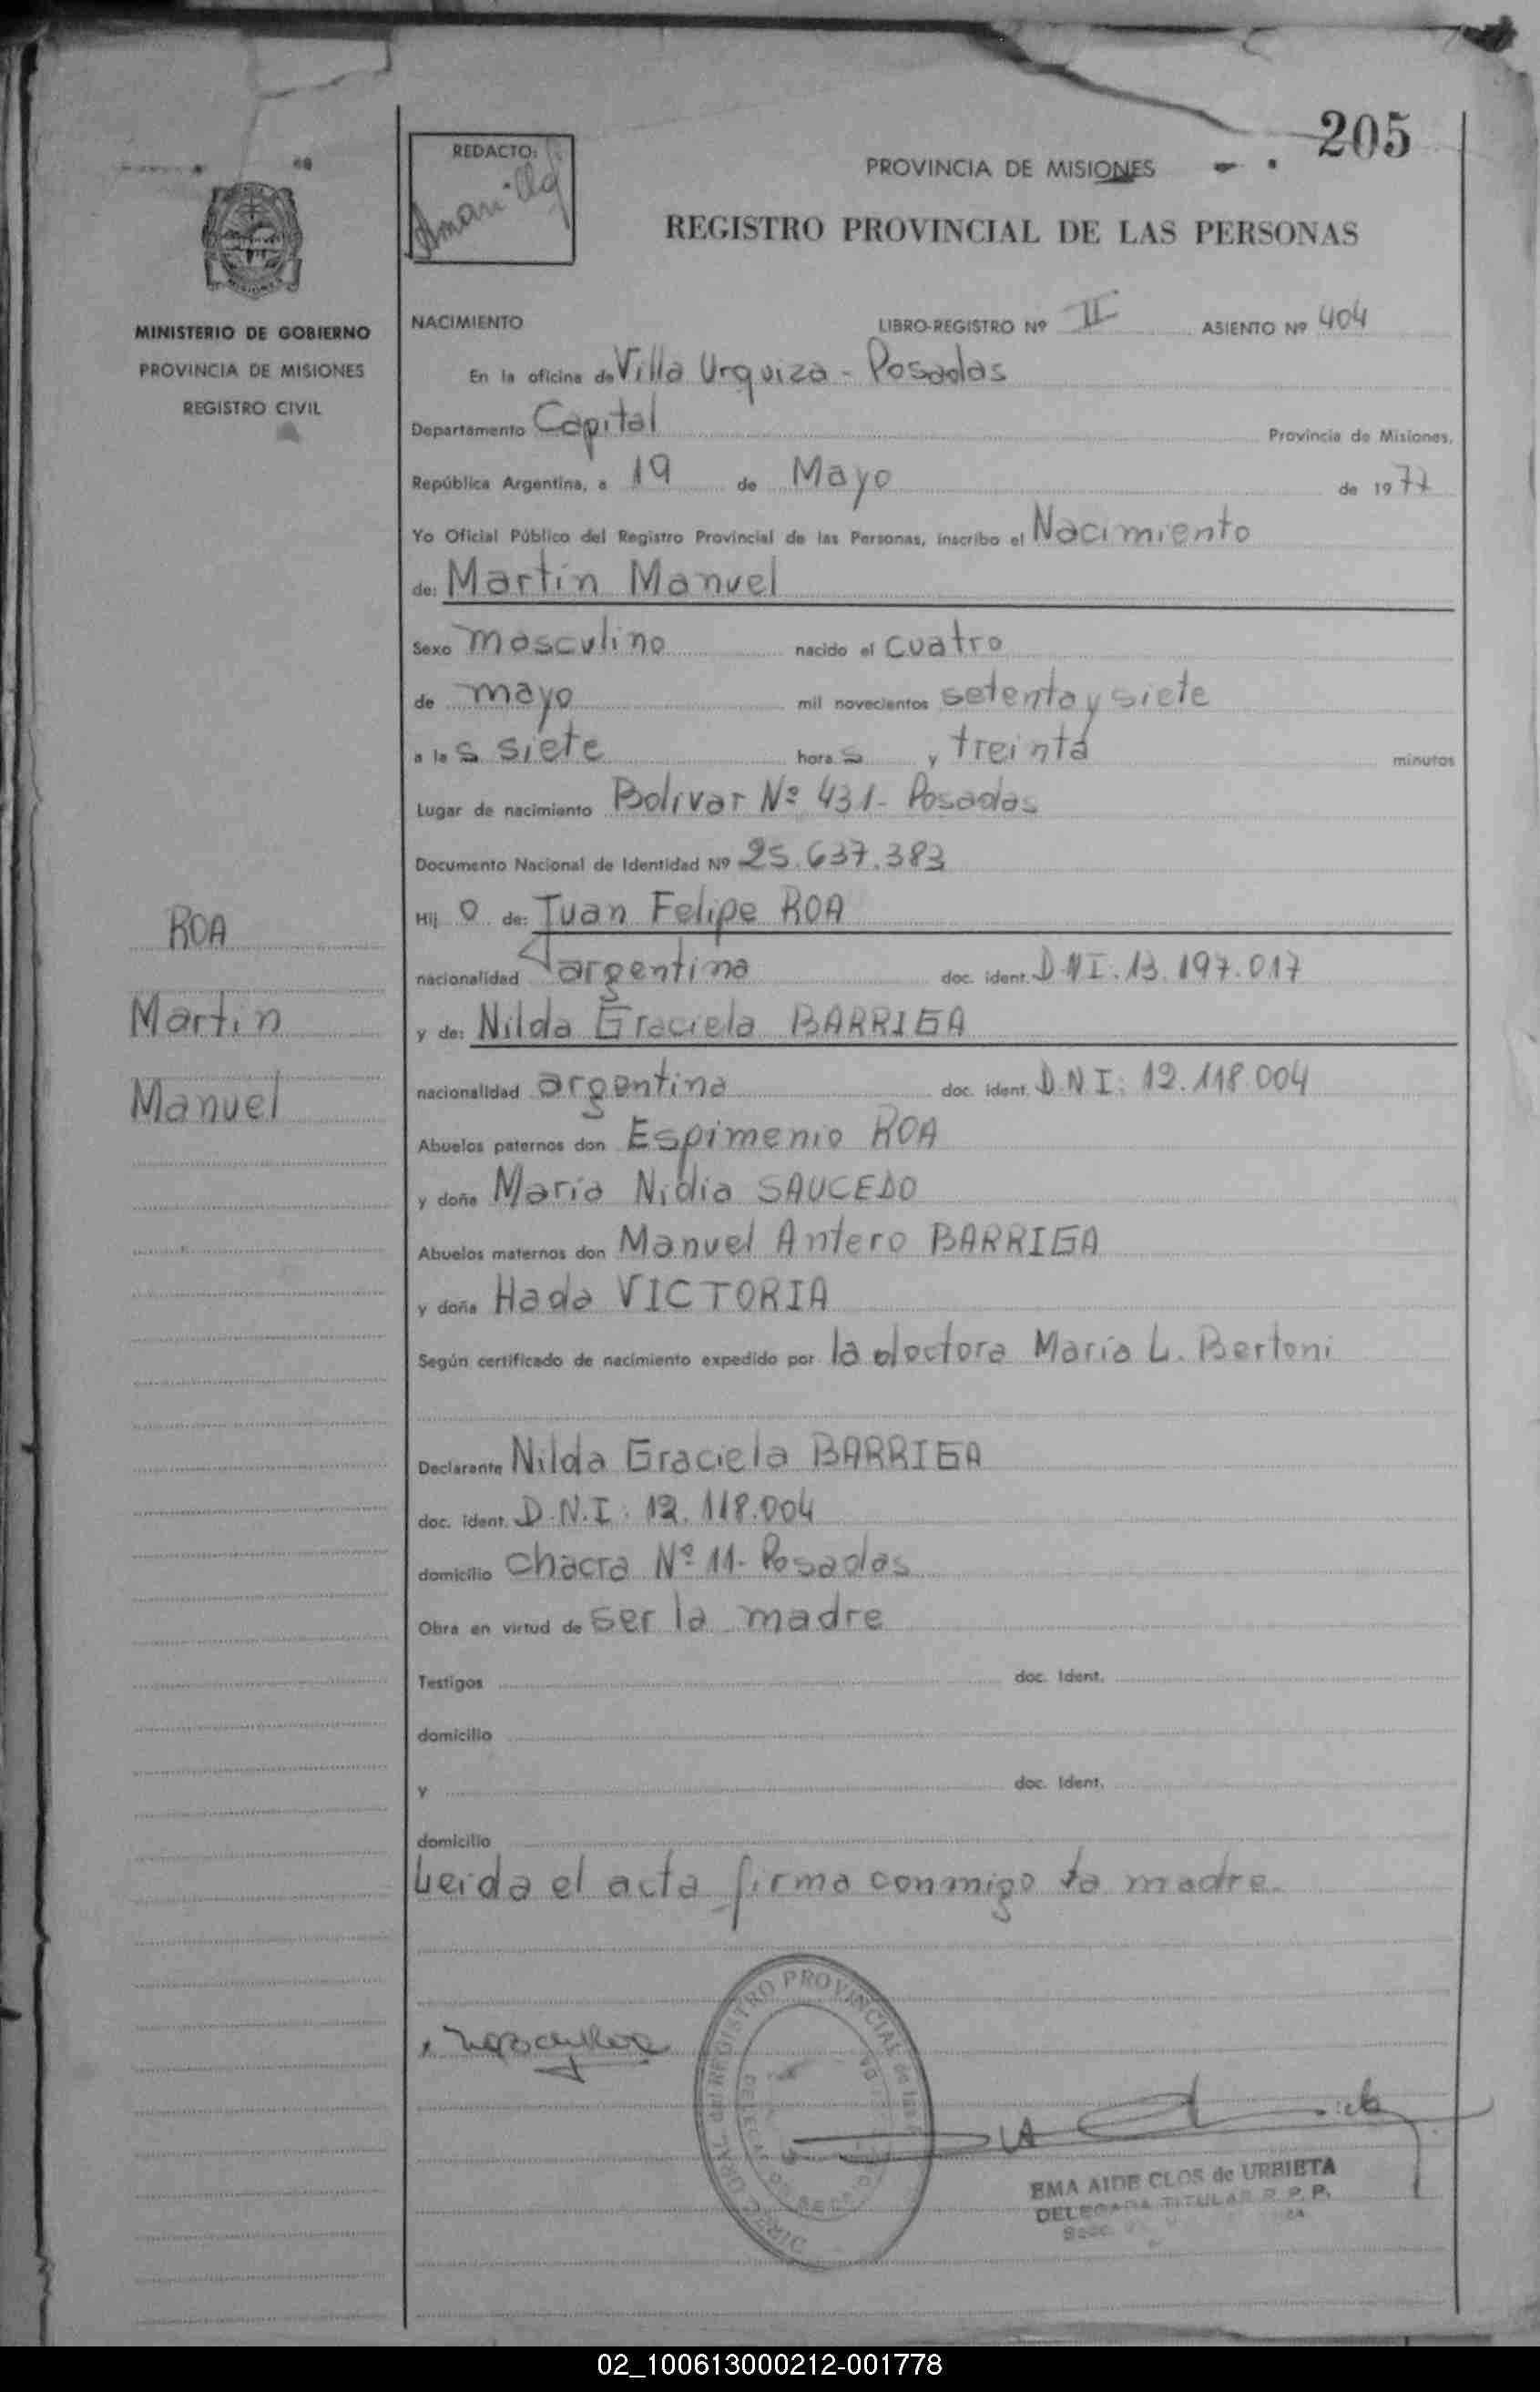 205
REDACTO:
Amarilla
PROVINCIA DE MISIONES
REGISTRO PROVINCIAL DE LAS PERSONAS
MINISTERIO DE GOBIERNO
PROVINCIA DE MISIONES
REGISTRO CIVIL
NACIMIENTO LIBRO-REGISTRO Nº II ASIENTO Nº 404
En la oficina de Villa Urquiza - Posadas
Departamento Capital Provincia de Misiones,
República Argentina, a 19 de Mayo de 1977
Yo Oficial Público del Registro Provincial de las Personas, inscribo el Nacimiento
de: Martin Manuel
Sexo masculino nacido el cuatro
de mayo mil novecientos setenta y siete
a las siete horas y treinta minutos
Lugar de nacimiento Bolivar Nº 431- Posadas
Documento Nacional de Identidad Nº 25.637.383
Hijo de: Juan Felipe ROA
nacionalidad argentina doc. ident. D.N.I. 13.197.017
y de: Nilda Graciela BARRIGA
nacionalidad argentina doc. ident. D.N.I: 12.118.004
Abuelos paternos don Espimenio ROA
y doña Maria Nidia SAUCEDO
Abuelos maternos don Manuel Antero BARRIGA
y doña Hada VICTORIA
Según certificado de nacimiento expedido por la doctora María L. Bertoni
Declarante Nilda Graciela BARRIGA
doc. ident. D.N.I: 12.118.004
domicilio Chacra Nº 11- Posadas
Obra en virtud de ser la madre
Testigos doc. Ident.
domicilio
y doc. Ident.
domicilio
Leida el acta firma conmigo la madre.
ROA
Martin
Manuel
DIREC. GRAL. del REGISTRO PROVINCIAL de las
EMA AIDE CLOS de URBIETA
DELEGADA TITULAR R. P. P.
Secc.
02_100613000212-001778